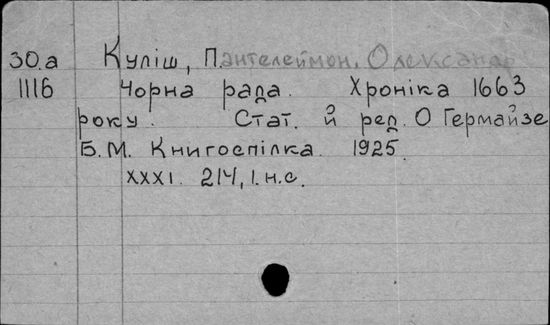 30.а Куліш, Пантелеймон. Олександр
1116 Чорна рада. Хроніка 1663
року. Стат. й ред. О Гермайзе
Б.М. Книгоспілка. 1925.
XXXI. 214, 1.н.с.